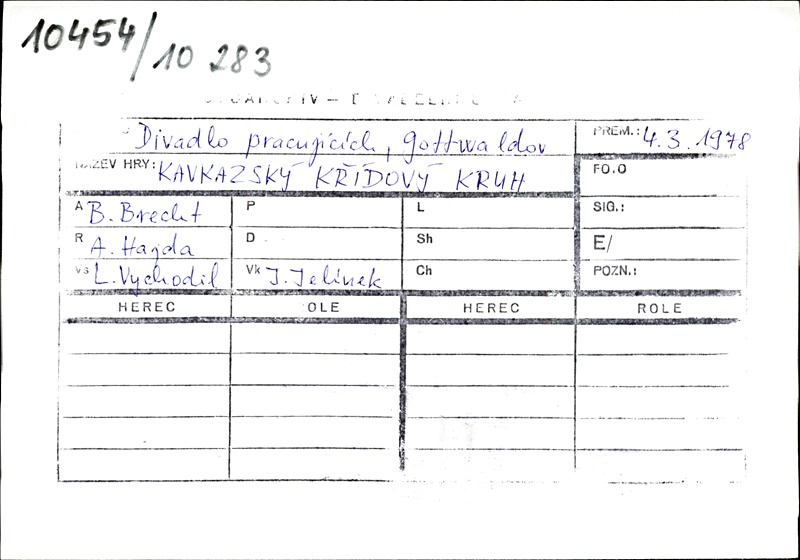 10454/10 283
Divadlo pracujících, gottwaldov PREM.: 4.3.1978
NÁZEV HRY: KAVKAZSKÝ KŘÍDOVÝ KRUH FO.O
A B. Brecht P L SIG.:
R A. Hajda D Sh E/
Vs L. Vychodil Vk J. Jelínek Ch POZN.:
HEREC OLE HEREC ROLE